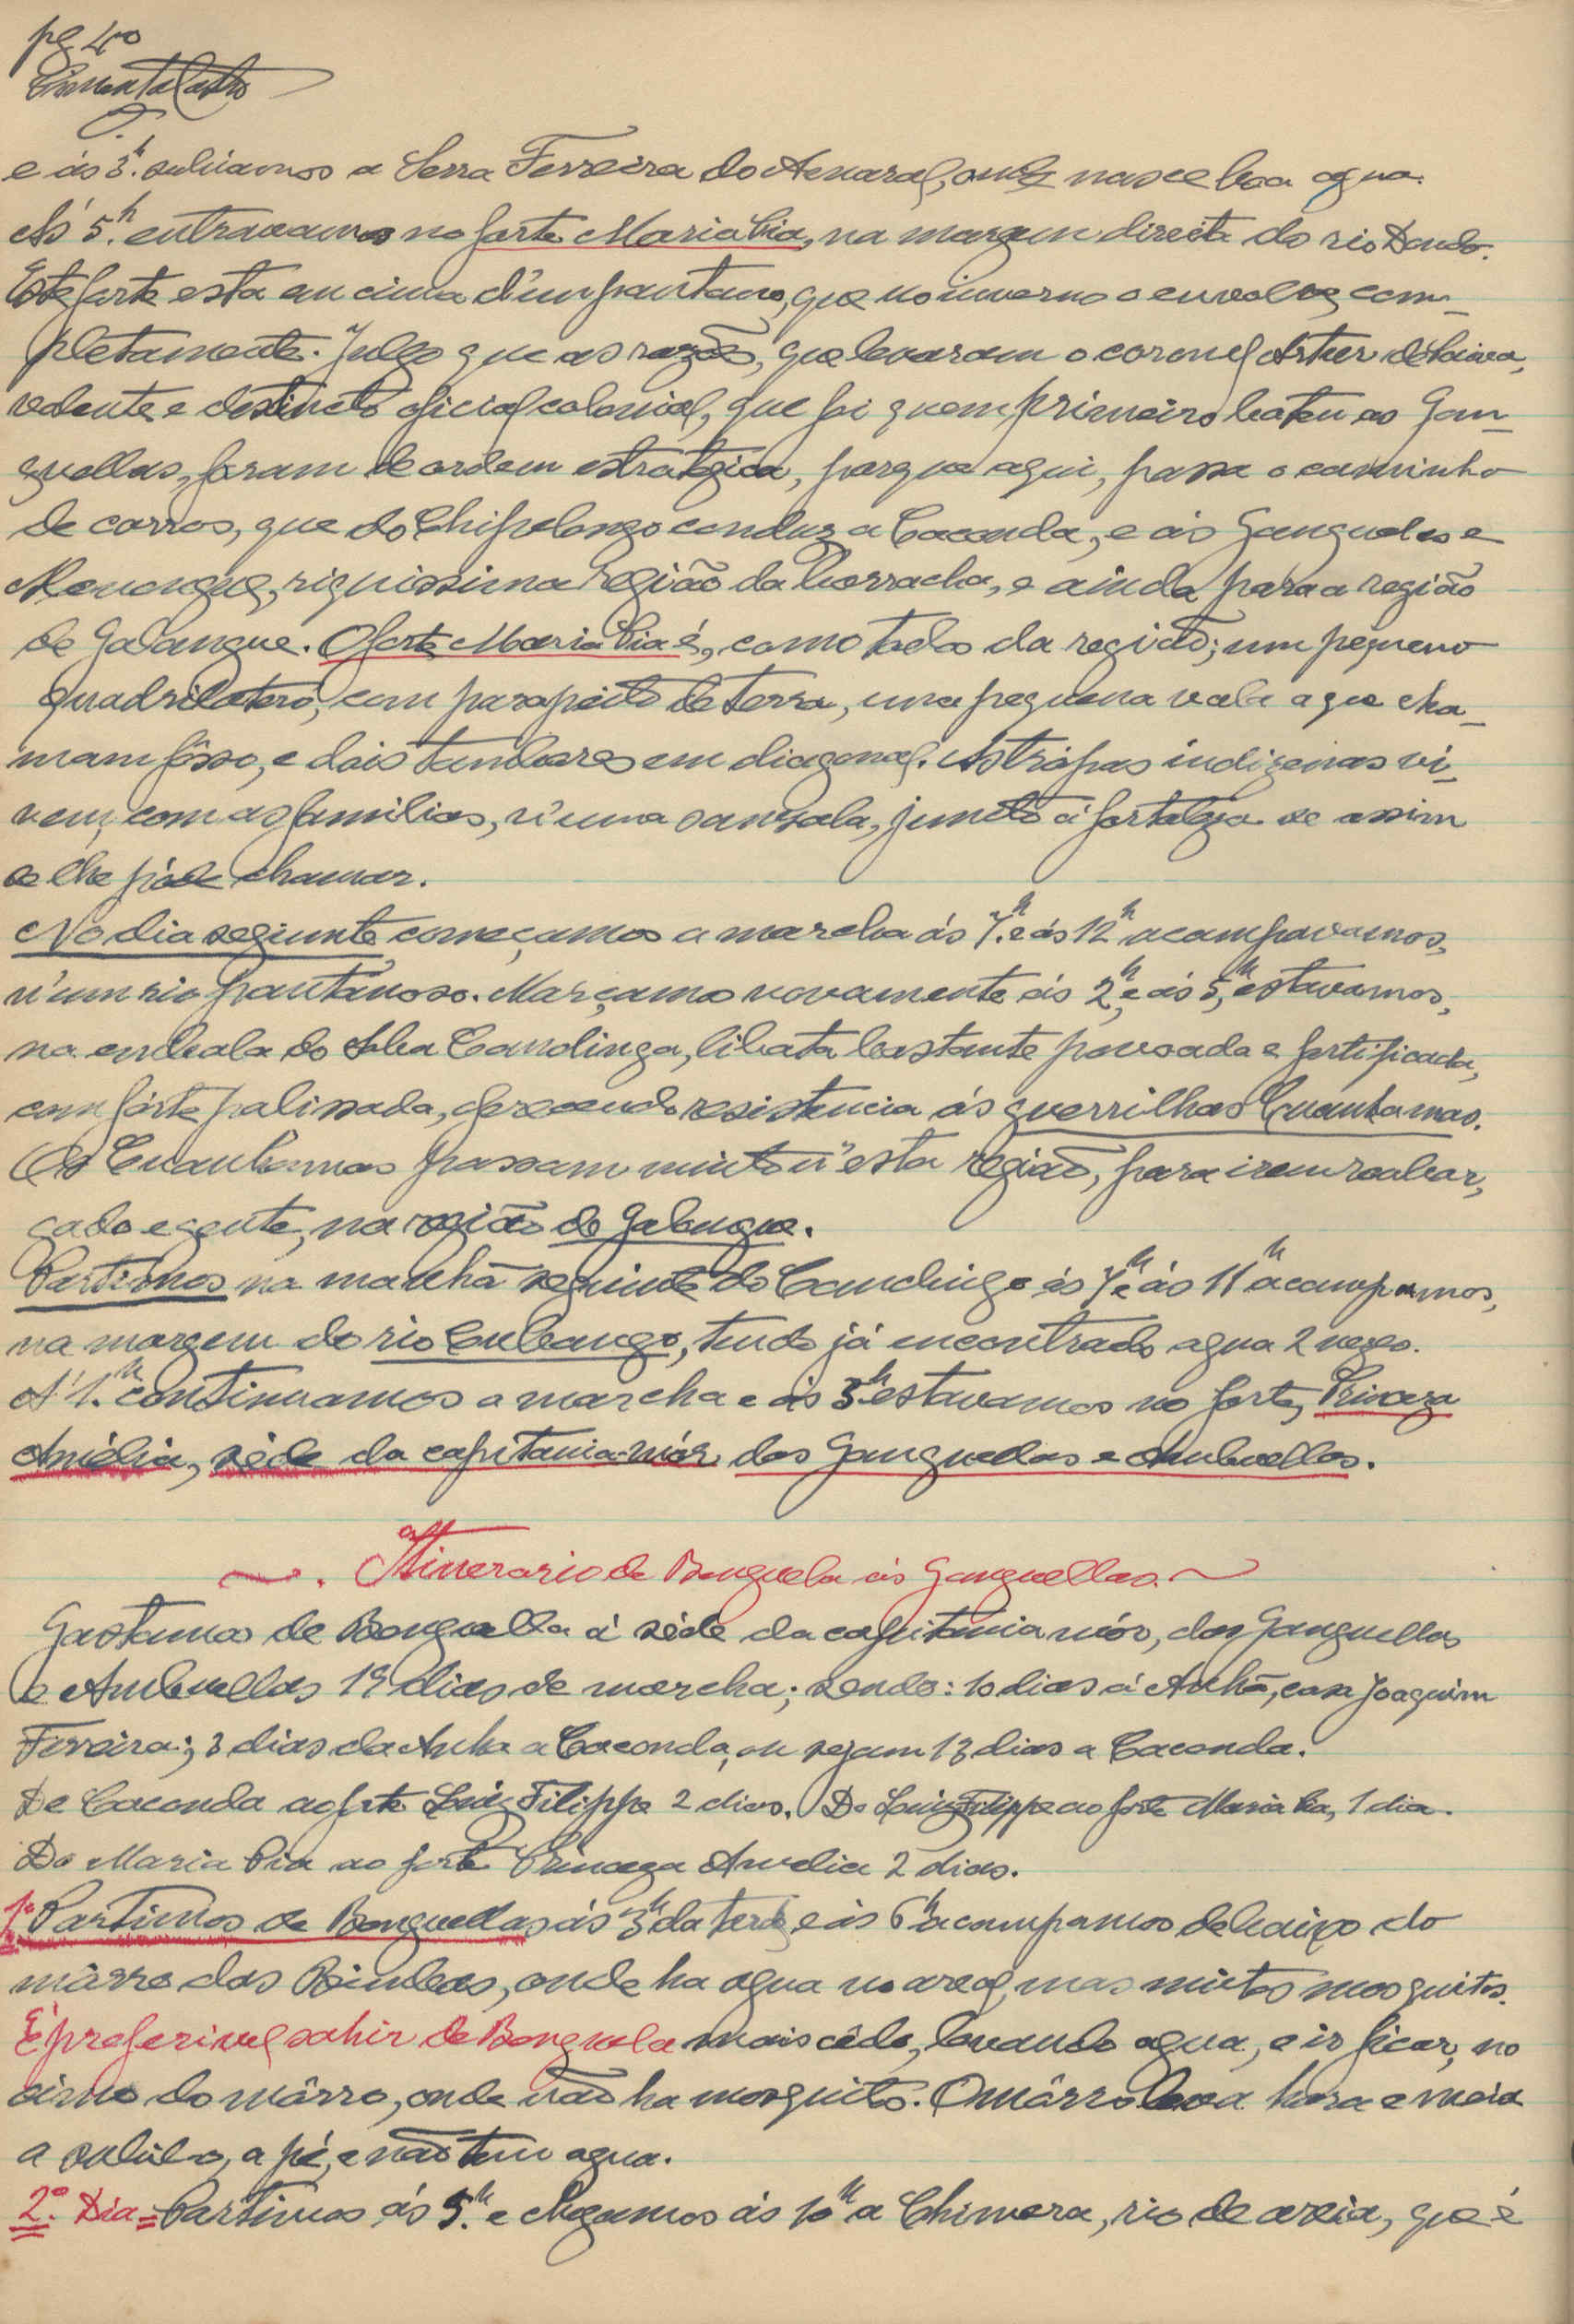 pg 40
Pimenta Castro
e ás 3h. subiamos a Serra Ferreira do Amaral, onde nasce boa agua.
Ás 5h. entravamos no forte Maria Pia, na margem direita do rio
Este forte esta em cima d'um pantano, que no inverno o envolve com-
pletamente. Julgo que as razões, que levaram o coronel Artur de Paiva,
valente e destincto oficial colonial, que foi quem primeiro bateu os Gan-
guellas, foram de ordem estratégica, porque aqui, passa o caminho
de carros, que do Chipelongo conduz a Caconda, e ás Ganguelas e
Menongue, riquissima região da borracha, e ainda para a região
de Galangue. O forte Maria Pia é, como todos da região, um pequeno
quadrilatero, com parapeito de terra, uma pequena vala a que cha-
mam fôsso, e dois tambores em diagonal. As tropas indigenas vi-
vem, com as familias, n'uma sanzala, juncto á fortaleza se assim
se lhe póde chamar.
No dia seguinte começamos a marcha ás 7h. e ás 12h acampavamos,
n'um rio pantanoso. Marçamos novamente ás 2h, e ás 5h, estavamos,
na embala do Soba Candinga, libata bastante povoada e fortificada,
com fórte palissada, oferecendo resistencia ás guerrilhas Cuanhamas.
Os Cuanhamas passam muito n'esta região, para irem roubar,
gado e gente, na região de Galangue.
Partimos na manhã seguinte do Candinga ás 7h e ás 11h acampamos,
na margem do rio Cubango, tendo já encontrado agua 2 vezes.
Á 1h. continuamos a marcha e ás 3h. estavamos no forte, Princeza
Amélia, séde da capitania-mór, dos Ganguelas e Ambuellas.
Itinerario de Benguela ás Ganguellas.
Gastamos de Benguella á séde da capitania mór, dos Ganguellas
e Ambuellas 18 dias de marcha; sendo: 10 dias á Anhã, casa Joaquim
Ferreira; 3 dias da Anha a Caconda, ou sejam 13 dias a Caconda.
De Caconda ao forte Luiz Filippe 2 dias. De Luiz Filippe ao forte Maria Pia, 1 dia.
De Maria Pia ao forte Princeza Amelia 2 dias.
1º Partimos de Benguellas ás 3h da tarde e ás 6h acampamos debaixo do
môrro das Bimbas, onde ha agua no areal, mas muitos mosquitos.
É preferivel sahir de Benguela mais cêdo, levando agua, e ir ficar, no
cimo do môrro, onde não ha mosquitos. O môrro leva hora e meia
a subil-o, a pé, e não tem agua.
2º. Dia = Partimos ás 5h. e chegamos ás 10h a Chimera, rio de areia, que é